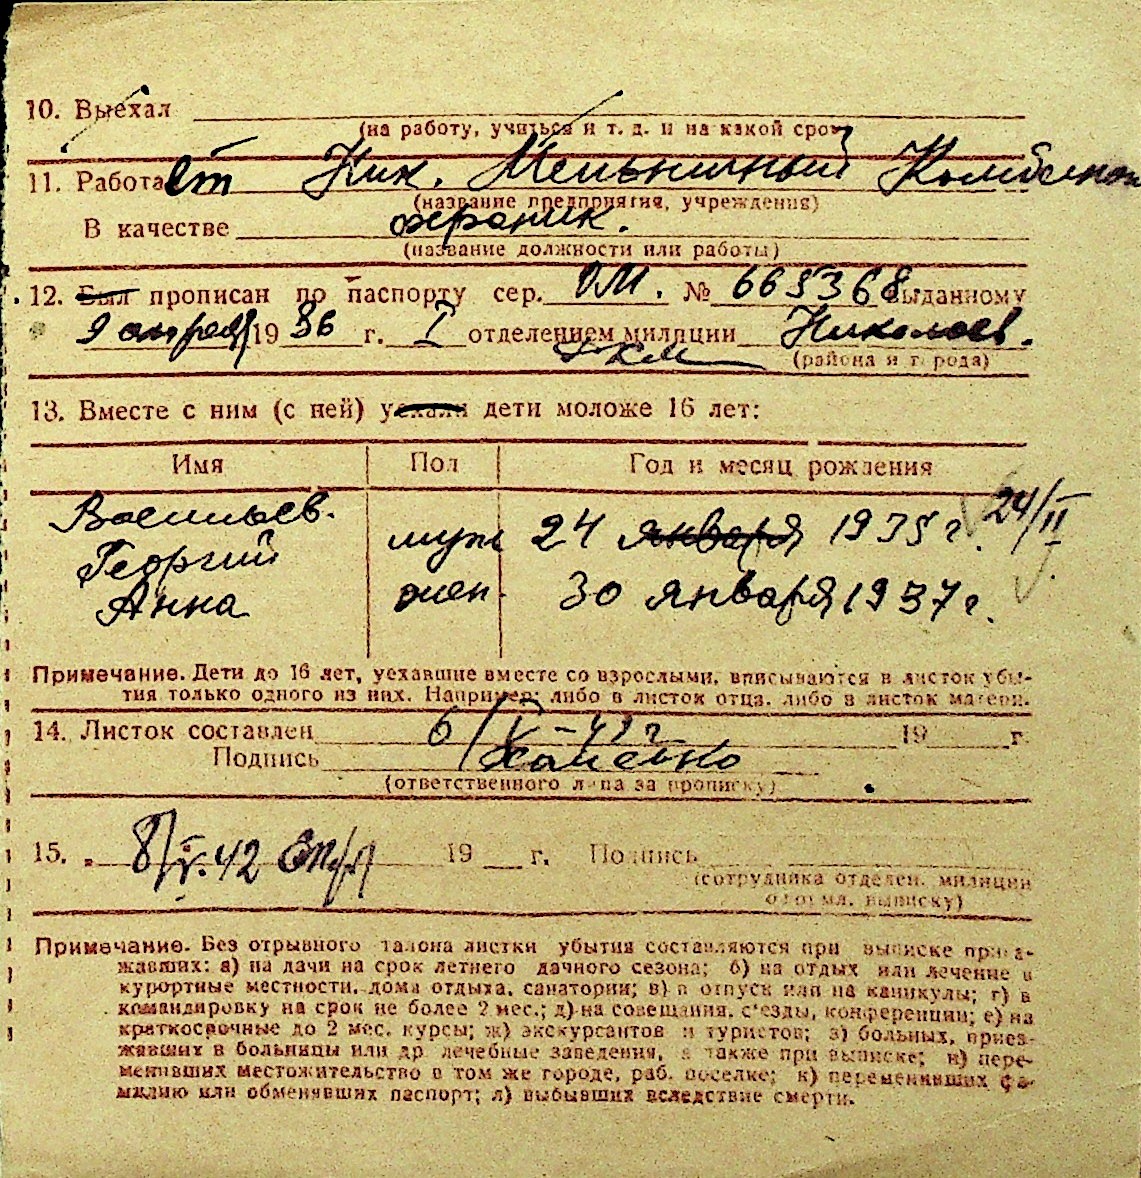 10. Выехал
(на работу, учиться и т. д. и на какой срок)
11. Работает Ник. Мельничный Комбинат
(название предприятия, учреждения)
В качестве охраник.
(название должности или работы)
12. Был прописан по паспорту сер. ОМ. № 665368 выданному
9 апреля 1936 г. I отделением милиции Николаев.
РКМ (района и города)
13. Вместе с ним (с ней) уехали дети моложе 16 лет:
Имя Пол Год и месяц рождения
Васильев. 24/II
Георгий муж 24 января 1935 г.
Анна жен. 30 января 1937 г.
Примечание. Дети до 16 лет, уехавшие вместе со взрослыми, вписываются в листок убы-
тия только одного из них. Например: либо в листок отца, либо в листок матери.
14. Листок составлен 6/V-42 г 19 г.
Подпись
(ответственного лица за прописку)
15. 8/V.42 19 г. Подпись
(сотрудника отделен. милиции
оформл. выписку)
Примечание. Без отрывного талона листки убытия составляются при выписке приез-
жавших: а) на дачи на срок летнего дачного сезона; б) на отдых или лечение в
курортные местности, дома отдыха, санатории; в) в отпуск или на каникулы; г) в
командировку на срок не более 2 мес.; д) на совещания, с'езды, конференции; е) на
краткосрочные до 2 мес. курсы; ж) экскурсантов и туристов; з) больных, приез-
жавших в больницы или др лечебные заведения, а также при выписке; и) пере-
менивших местожительство в том же городе, раб. поселке; к) переменивших фа-
милию или обменявших паспорт; л) выбывших вследствие смерти.